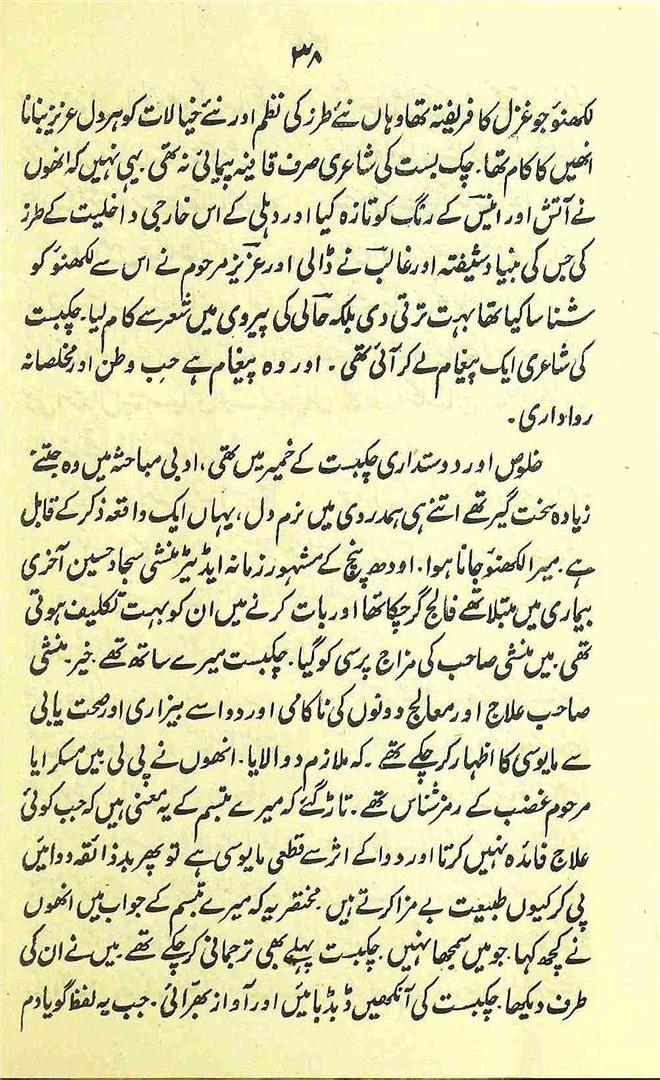 ۳۸
لکھنؤ جو غزل کا فریفتہ تھا وہاں نئے طرز کی نظم اور نئے خیالات کو ہر دل عزیز بنانا
انھیں کا کام تھا۔ چک بست کی شاعری صرف قافیہ پیمائی نہ تھی۔ یہی نہیں کہ انھوں
نے آتش اور انیس کے رنگ کو تازہ کیا اور دہلی کے اس خارجی داخلیت کے طرز
کی جس کی بنیاد شیفتہ اور غالب نے ڈالی اور عزیز مرحوم نے اس سے لکھنؤ کو
شناسا کیا تھا بہت ترقی دی بلکہ حالی کی پیروی میں شعر سے کام لیا۔ چکبست
کی شاعری ایک پیغام لے کر آئی تھی۔ اور وہ پیغام ہے حب وطن اور مخلصانہ
رواداری۔
خلوص اور دوستداری چکبست کے خمیر میں تھی، ادبی مباحثہ میں وہ جتنے
زیادہ سخت گیر تھے اتنے ہی ہمدردی میں نرم دل، یہاں ایک واقعہ ذکر کے قابل
ہے۔ میرا لکھنؤ جانا ہوا۔ اودھ پنچ کے مشہور زمانہ ایڈیٹر منشی سجاد حسین آخری
بیماری میں مبتلا تھے فالج گر چکا تھا اور بات کرنے میں ان کو بہت تکلیف ہوتی
تھی۔ میں منشی صاحب کی مزاج پرسی کو گیا۔ چکبست میرے ساتھ تھے۔ خیر۔ منشی
صاحب علاج اور معالج دونوں کی ناکامی اور دوا سے بیزاری اور صحت یابی
سے مایوسی کا اظہار کر چکے تھے۔ کہ ملازم دوا لایا۔ انھوں نے پی لی میں مسکرایا
مرحوم غضب کے رمز شناس تھے۔ تاڑ گئے کہ میرے تبسم کے یہ معنی ہیں کہ جب کوئی
علاج فائدہ نہیں کرتا اور دوا کے اثر سے قطعی مایوسی ہے تو پھر بدذائقہ دوائیں
پی کر کیوں طبیعت بے مزا کرتے ہیں۔ مختصر یہ کہ میرے تبسم کے جواب میں انھوں
نے کچھ کہا۔ جو میں سمجھا نہیں۔ چکبست پہلے بھی ترجمانی کر چکے تھے۔ میں نے ان کی
طرف دیکھا۔ چکبست کی آنکھیں ڈبڈبائیں اور آواز بھرّائی۔ جب یہ لفظ گویا دم